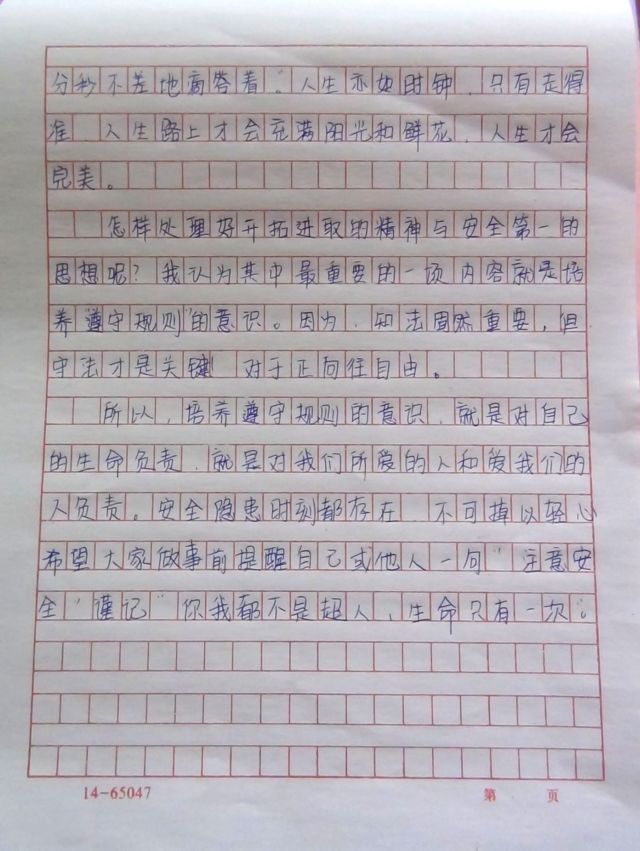 分秒不差地滴答着。人生亦如时钟，只有走得
准，人生路上才会充满阳光和鲜花，人生才会
完美。
怎样处理好开拓进取的精神与安全第一的
思想呢？我认为其中最重要的一项内容就是培
养“遵守规则”的意识。因为，知法固然重要，但
守法才是关键！对于正向往自由。
所以，培养遵守规则的意识，就是对自己
的生命负责，就是对我们所爱的人和爱我们的
人负责。安全隐患时刻都存在，不可掉以轻心
希望大家做事前提醒自己或他人一句“注意安
全”谨记“你我都不是超人，生命只有一次”。
14-65047
第 页